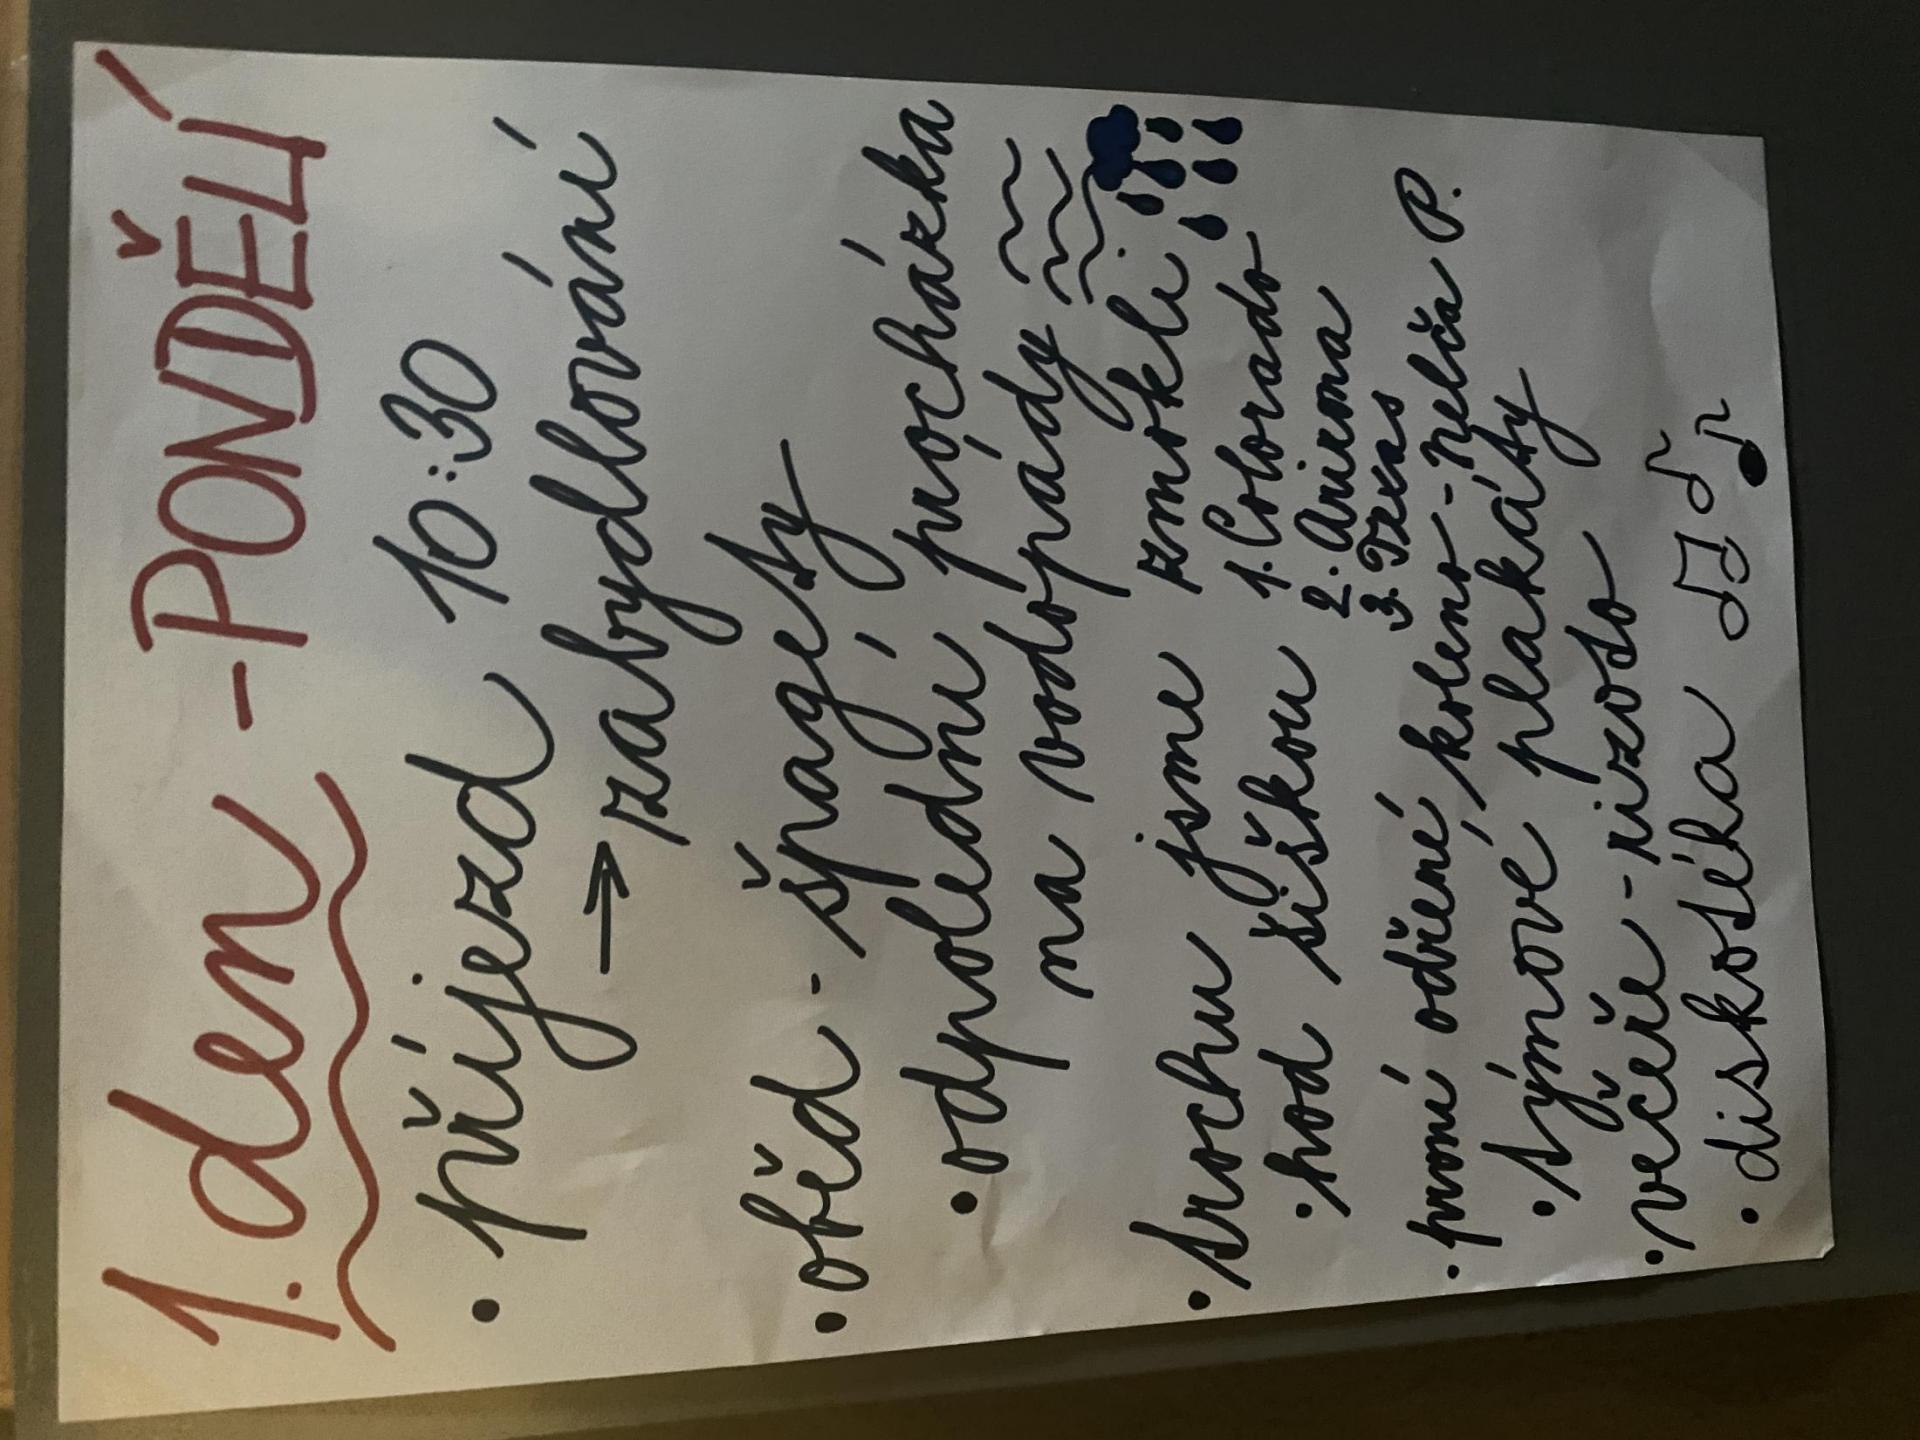 1. den - PONDĚLÍ
• příjezd 10:30
→ zabydlování
• oběd - špagety
• odpolední procházka
na vodopády
• trochu jsme zmokli
• hod šiškou 1. Colorado
2. Arizona
3. Texas
• první odřené koleno - Nelča P.
• týmové plakáty
• večeře - rizoto
• diskotéka